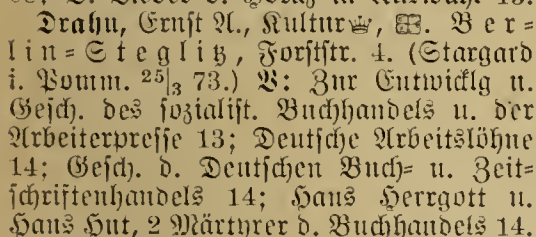 Drahn, Ernst A., Kultur♕, ⊞. Ber=
lin=Steglitz, Forststr. 4. (Stargard
i. Pomm. 25|3 73.) B: Zur Entwicklg u.
Gesch. des sozialist. Buchhandels u. der
Arbeiterpresse 13; Deutsche Arbeitslöhne
14; Gesch. d. Deutschen Buch= u. Zeit=
schriftenhandels 14; Hans Herrgott u.
Hans Hut, 2 Märtyrer d. Buchhandels 14.